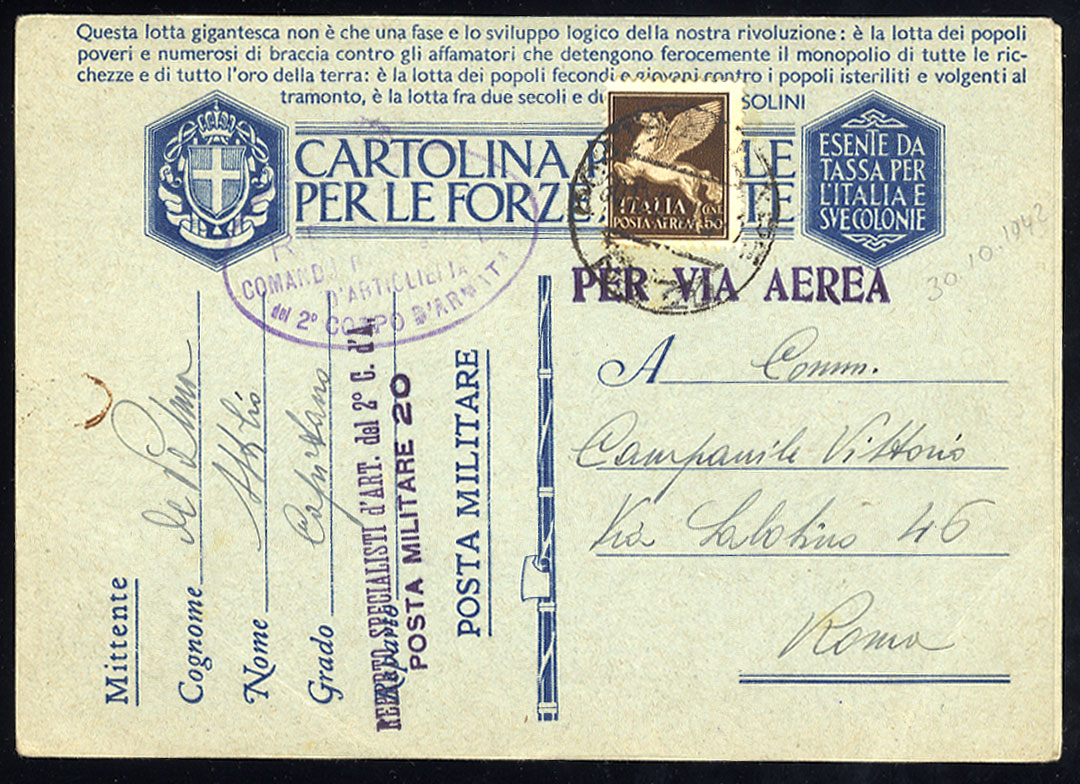 Questa lotta gigantesca non è che una fase e lo sviluppo logico della nostra rivoluzione: è la lotta dei popoli
poveri e numerosi di braccia contro gli affamatori che detengono ferocemente il monopolio di tutte le ric-
chezze e di tutto l'oro della terra: è la lotta dei popoli fecondi e giovani contro i popoli isteriliti e volgenti al
tramonto, è la lotta fra due secoli e du SOLINI
CARTOLINA LE
PER LE FORZE TE
ESENTE DA
TASSA PER
L'ITALIA E
SVE COLONIE
ITALIA
POSTA AEREA
CENT
50
COMANDO
D'ARTIGLIERIA
del 2° CORPO D'ARMATA
PER VIA AEREA
30.10.1942
A Comm.
Campanile Vittorio
Via Sabotino 46
Roma
Mittente
Cognome De Palma
Nome
Grado Capitano
Reparto
REPARTO SPECIALISTI d'ART. del 2° C. d'A.
POSTA MILITARE 20
POSTA MILITARE